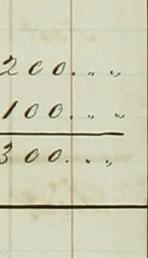 200. „ „
100. „ „
300. „ „